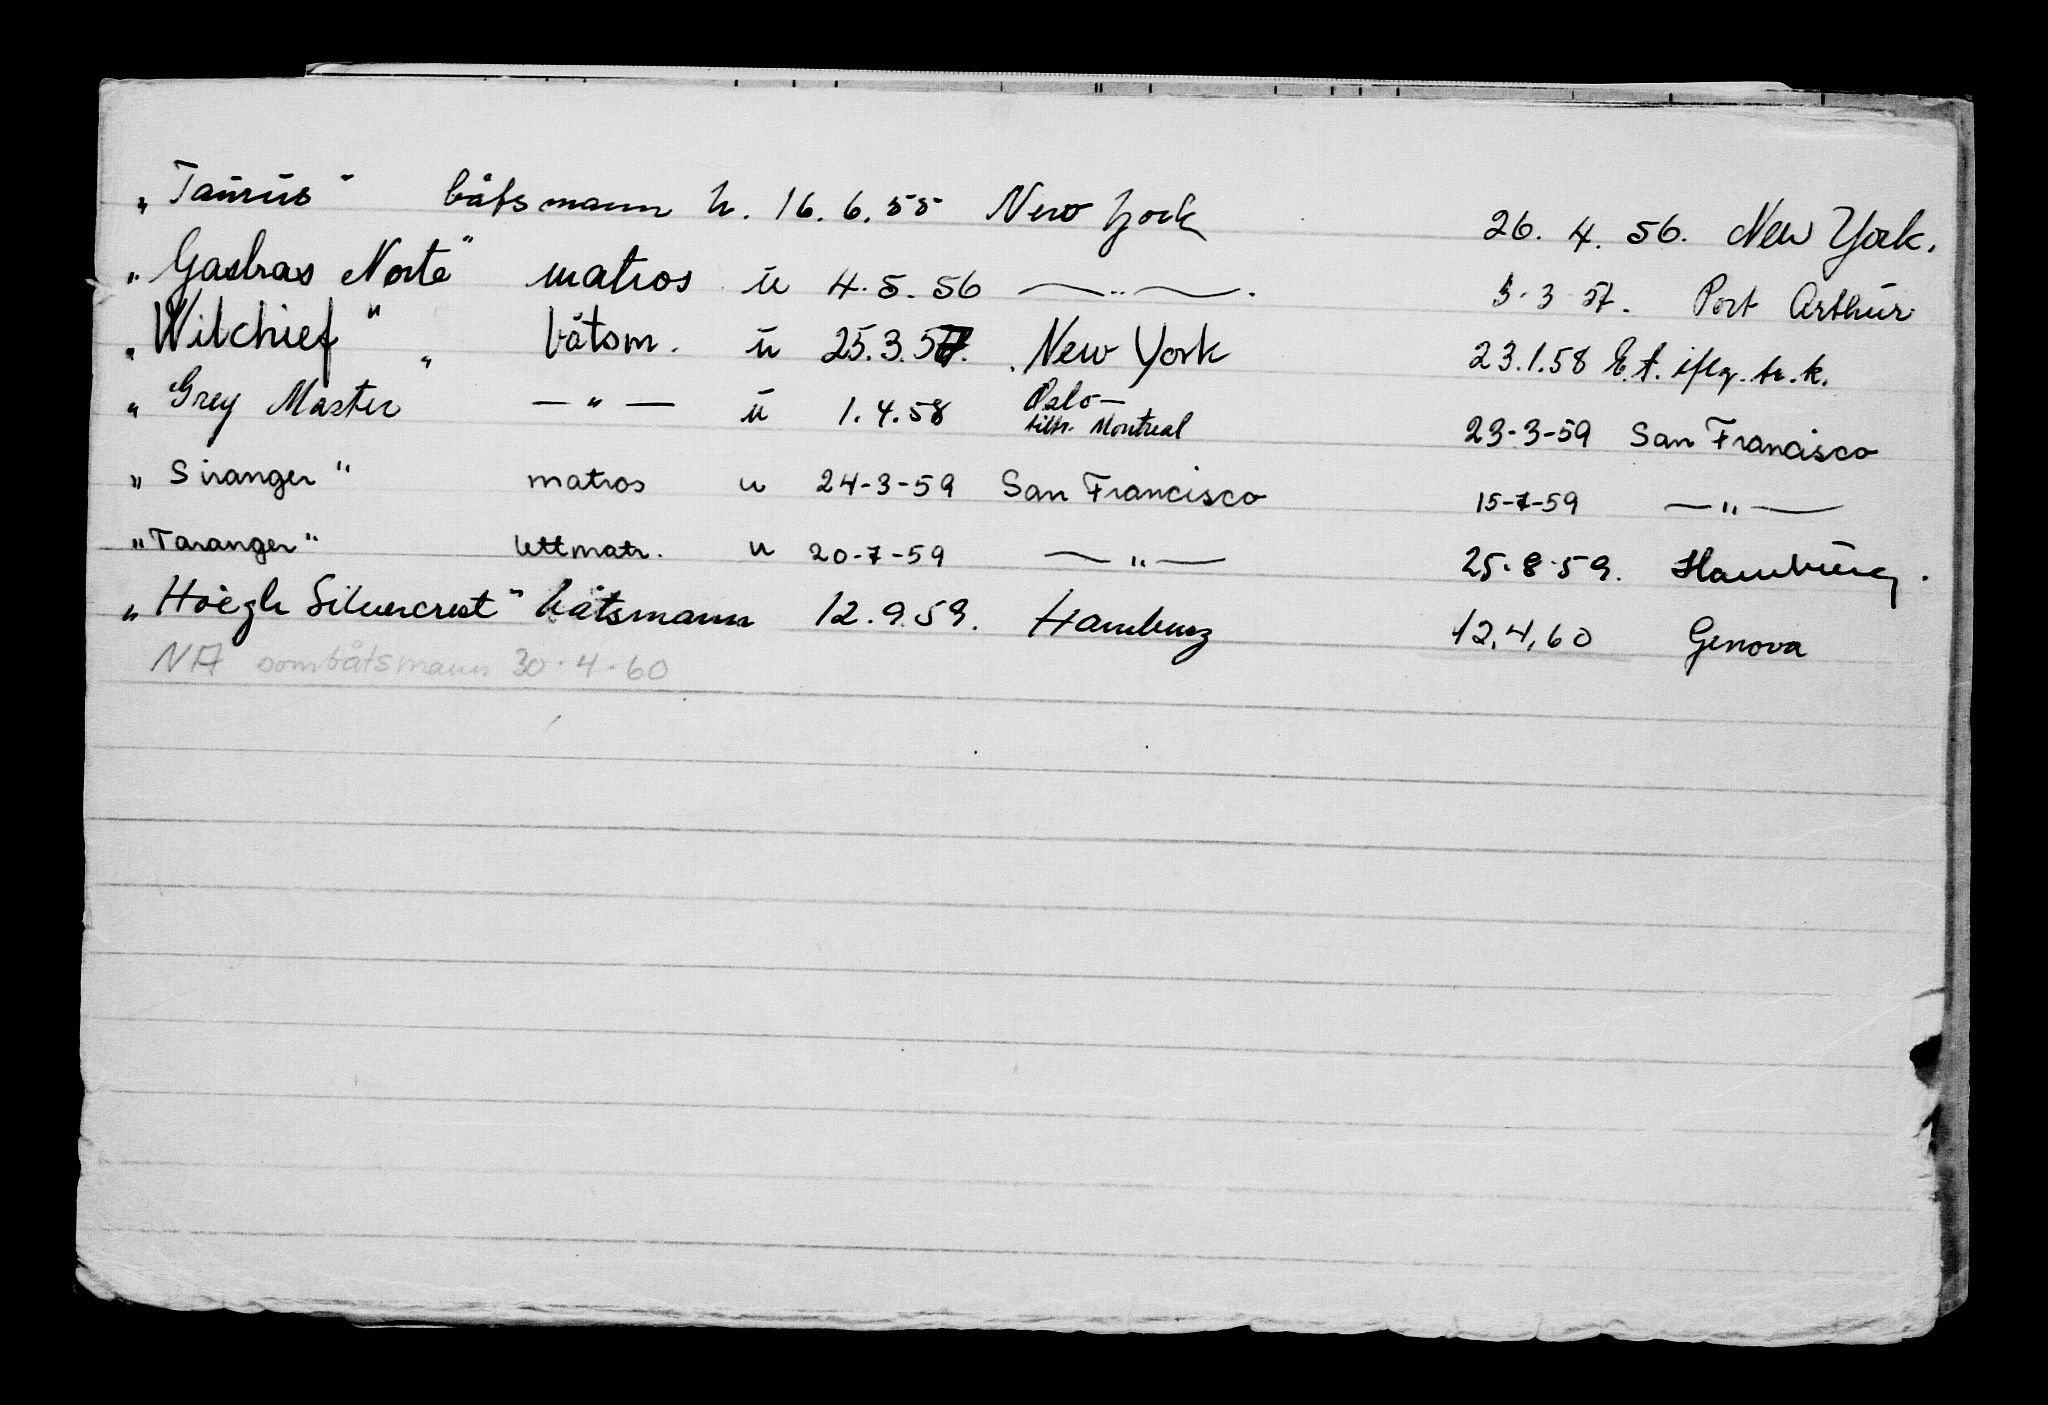 „Taurus" båtsmann u. 16.6.55 New York 26. 4. 56. New York.
„Gasbras Norte" matros u 4.5.56 —„—. 5-3-57. Port Arthur
„Wilchief" båtsm. u 25.3.57. New York 23.1.58 E.t. iflg. tr.k.
„Grey Master" —"— u 1.4.58 Oslo— 23-3-59 San Francisco
tiltr. Montreal
„Siranger" matros u 24-3-59 San Francisco 15-7-59 —"—
„Taranger" lettmatr. u 20-7-59 —"— 25.8.59. Hamburg.
„Höegh Silvercrest" båtsmann 12.9.59. Hamburg 12,4,60 Genova
NA som båtsmann 30.4.60